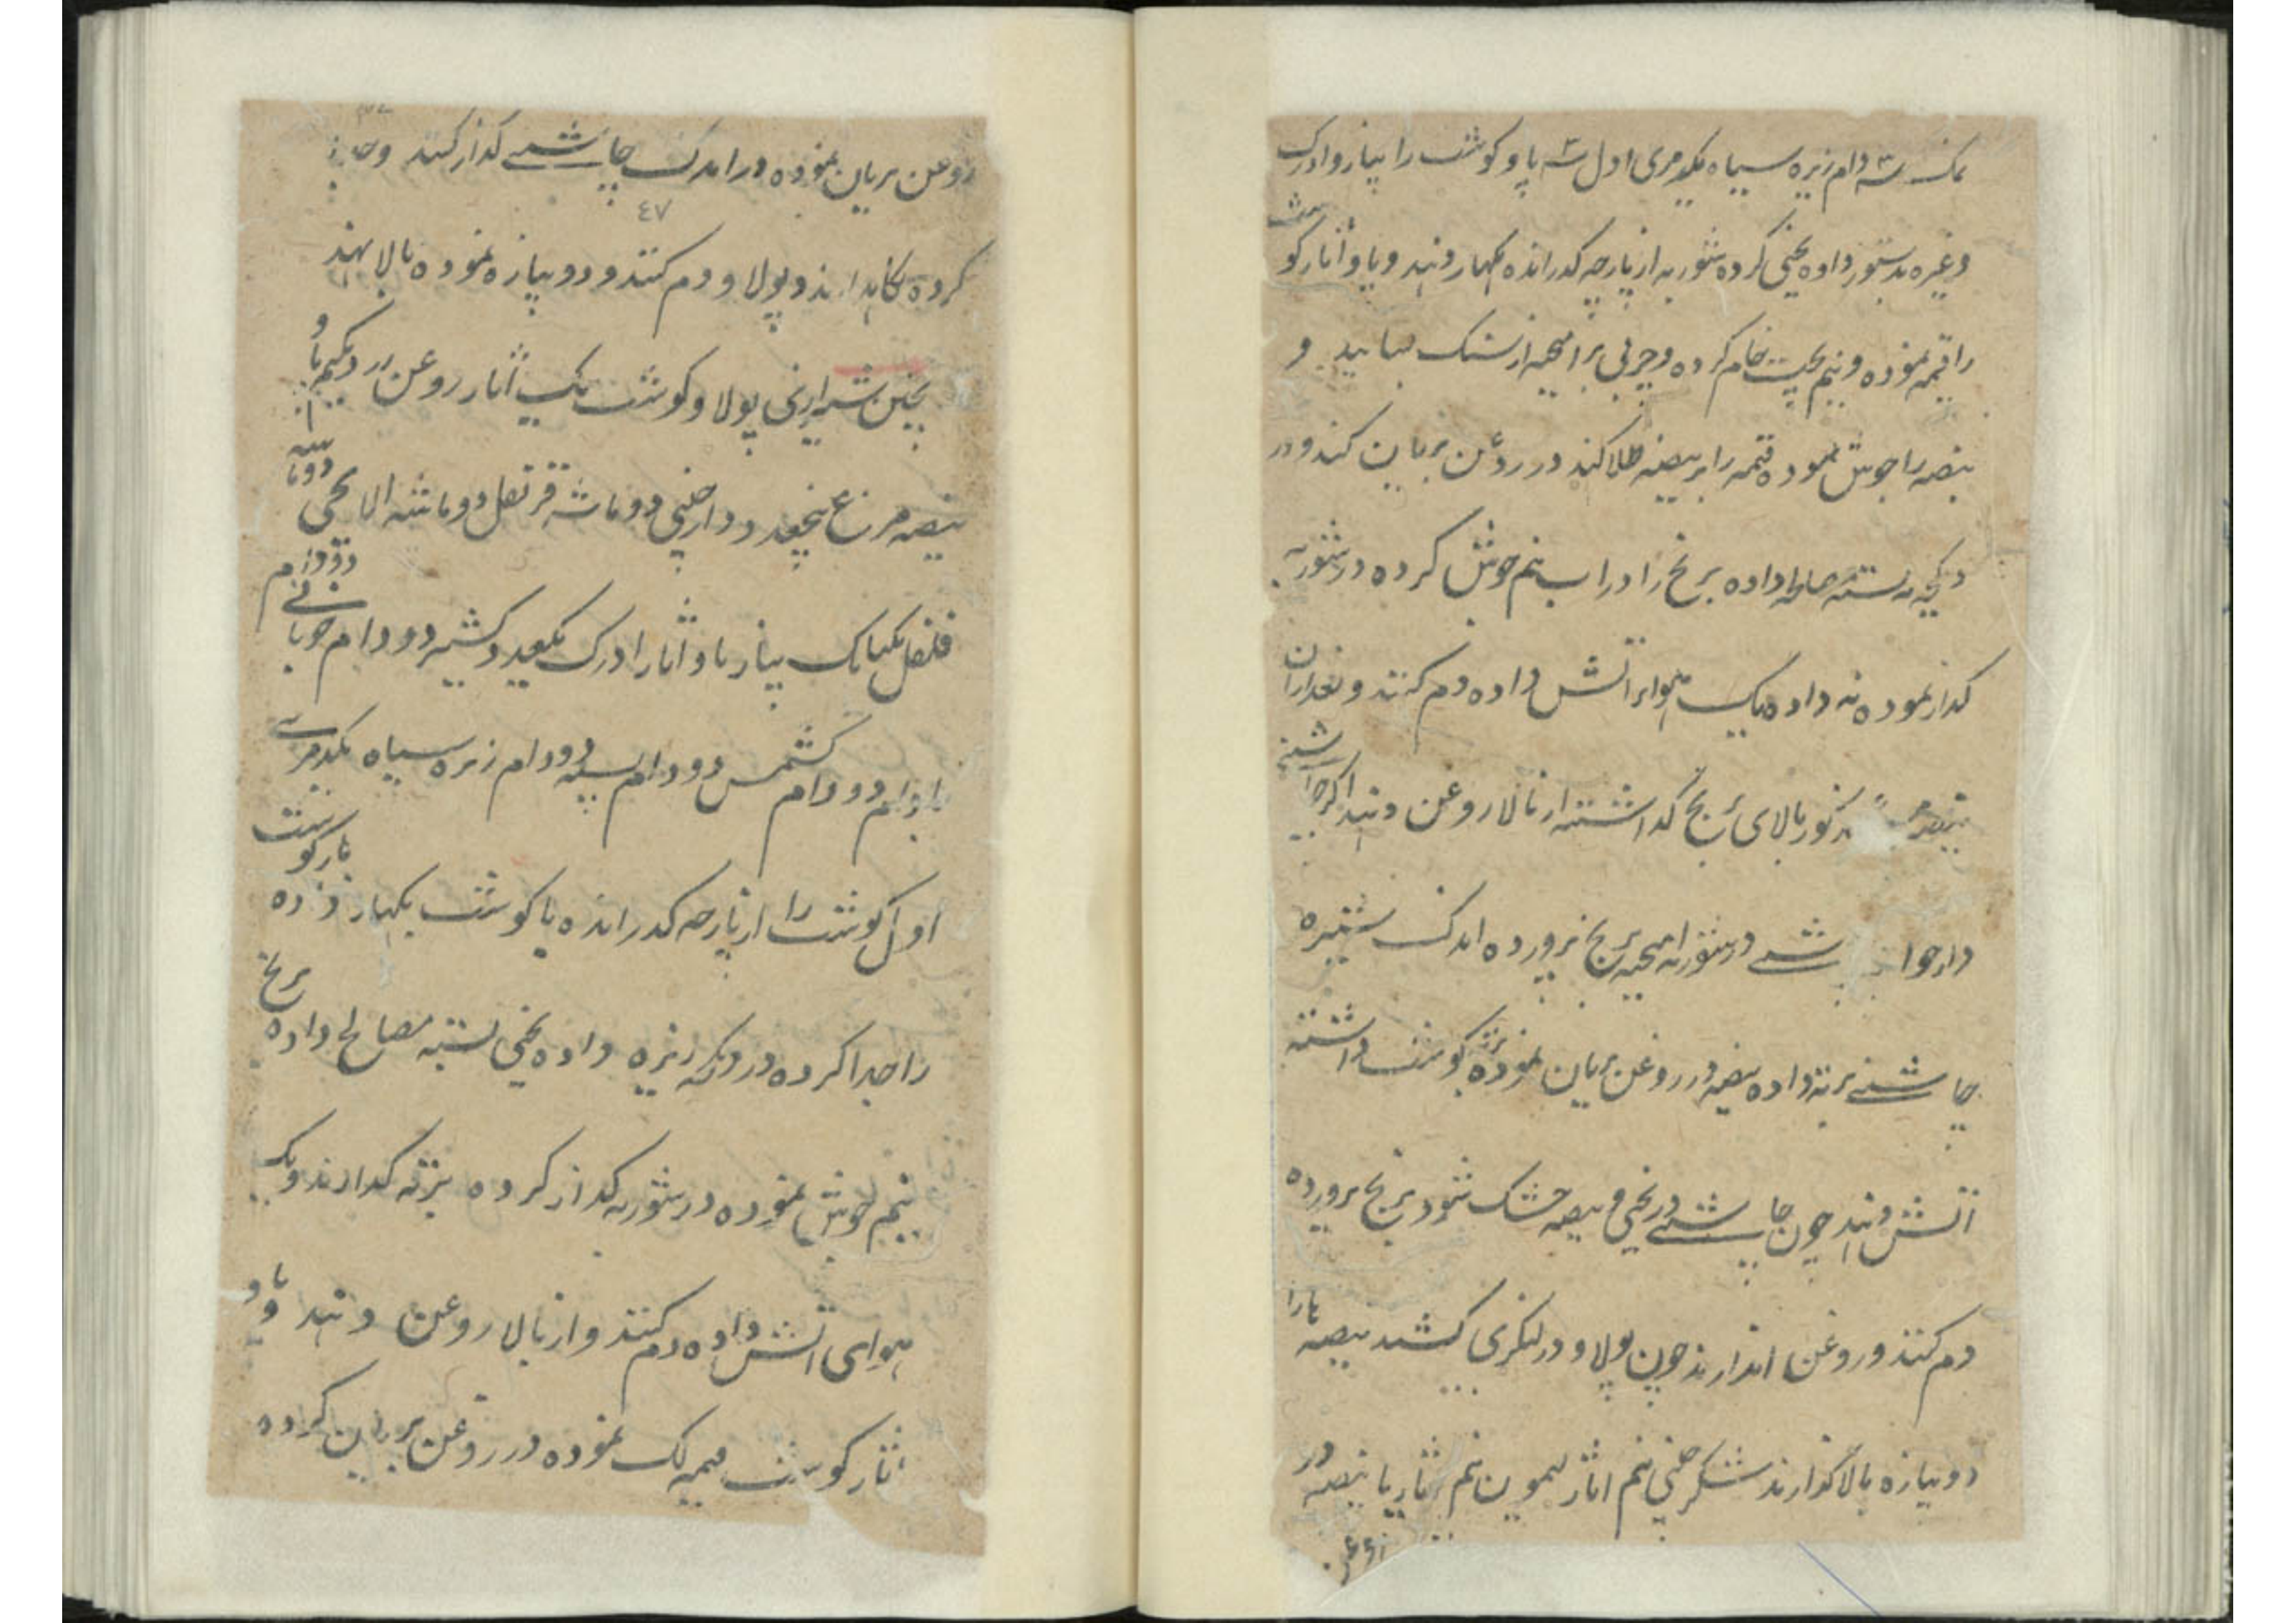 نمک سه دام زیره سیاه یکدمری اول سه پاو کوشت را پیاز و ادرک
وغیره بدستور داده یخنی کرده شوربه از پارچه کذرانده بکهار دهند و پاو آثار کوشت
را قیمه نموده و نیم پخت خام کرده و چربی برا میخه از سنک بسایند و
بیضه را جوش نموده قیمه را بر بیضه طلا کنند در روغن بریان کنند و در
دیکچه ته بسته مصالحه داده برنج را در آب نیم جوش کرده در شوربه
کذار نموده ته داده یک هوا بر آتش داده دم کنند و بعد ازان
بیضه مذکور بالای برنج کذاشته از بالا روغن دهند اکر چاشنی
دار خوا شی در شوربه میخته برنج پرورده اندک شیره
چاشنی بر ته داده بیضه در روغن بریان نموده بر ته کوشت داشته
آتش دهند چون چاشنی در یخنی و بیضه خشک شود برنج پرورده
دم کنند و روغن اندازند چون پولاو در لنکری کشند بیضه هارا
دوپیازه بالا کذارند شکر چینی نیم آثار لیمون نیم آثار یا بیضه در
روغن بریان نموده در اندک چاشنی کذار کنند و
٤٧
کرده نکاهدارند و پولاو دم کنند و دوپیازه نموده بالا نهند
یخنی شیرازی پولاو کوشت یک آثار روغن نیم پاو
بیضه مرغ پنجعدد دارچینی دو ماشه قرنفل دو ماشه الایچی دو ماشه
فلفل یکتانک پیاز پاو آثار ادرک یکعدد کشنیز دو دام خوبانی دو دام
بادام دو دام کشمش دو دام پسته دو دام زیره سیاه یکدمری
اول کوشت را از پارچه کذرانده با کوشت بکهار زده باز کوشت
را جدا کرده در دیکه زیره داده یخنی بسته مصالح داده برنج
نیم جوش نموده در شوربه کذار کرده بر ته کذارند و یک
هوای آتش داده دم کنند و از بالا روغن دهند و پاو
آثار کوشت قیمه لک نموده در روغن بریان کرده